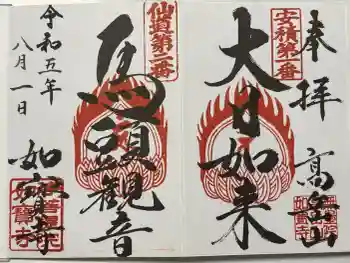 奉拝
安積第一番
大日如来
高岳山
仙道第二番
馬頭觀音
令和五年
八月一日
如宝寺
如寶寺